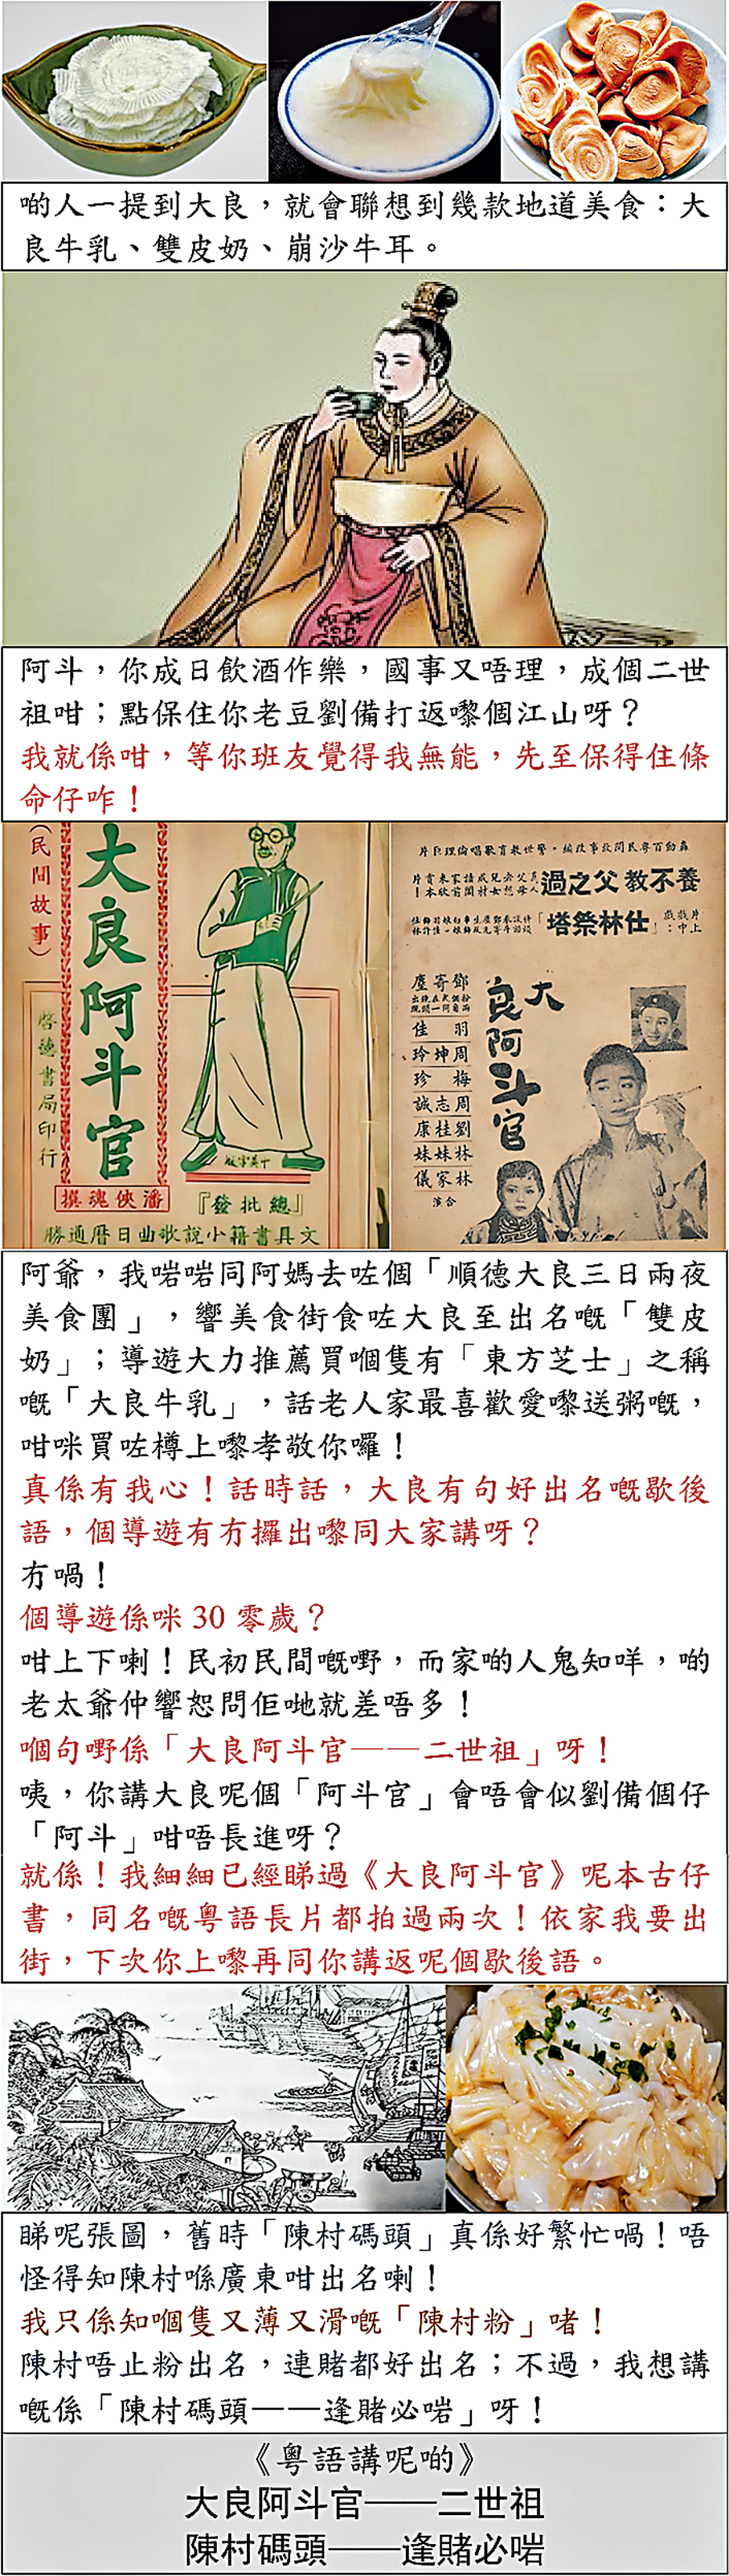 啲人一提到大良，就會聯想到幾款地道美食：大
良牛乳、雙皮奶、崩沙牛耳。
阿斗，你成日飲酒作樂，國事又唔理，成個二世
祖咁；點保住你老豆劉備打返嚟個江山呀？
我就係咁，等你班友覺得我無能，先至保得住條
命仔咋！
（民間故事）
大良阿斗官
啓德書局印行
潘俠魂撰
『總批發』
文具書籍小說歌曲日曆通勝
轟動百粵民間故事改編・警世教育歌唱倫理巨片
養不教父之過
仕林祭塔
大良阿斗官
鄧寄塵
羽佳
周坤玲
梅珍
周志誠
劉桂康
林妹妹
林家儀
合演
阿爺，我啱啱同阿媽去咗個「順德大良三日兩夜
美食團」，響美食街食咗大良至出名嘅「雙皮
奶」；導遊大力推薦買嗰隻有「東方芝士」之稱
嘅「大良牛乳」，話老人家最喜歡愛嚟送粥嘅，
咁咪買咗樽上嚟孝敬你囉！
真係有我心！話時話，大良有句好出名嘅歇後
語，個導遊有冇攞出嚟同大家講呀？
冇喎！
個導遊係咪 30 零歲？
咁上下喇！民初民間嘅嘢，而家啲人鬼知咩，啲
老太爺仲響恕問佢哋就差唔多！
嗰句嘢係「大良阿斗官——二世祖」呀！
咦，你講大良呢個「阿斗官」會唔會似劉備個仔
「阿斗」咁唔長進呀？
就係！我細細已經睇過《大良阿斗官》呢本古仔
書，同名嘅粵語長片都拍過兩次！依家我要出
街，下次你上嚟再同你講返呢個歇後語。
睇呢張圖，舊時「陳村碼頭」真係好繁忙喎！唔
怪得知陳村喺廣東咁出名喇！
我只係知嗰隻又薄又滑嘅「陳村粉」啫！
陳村唔止粉出名，連賭都好出名；不過，我想講
嘅係「陳村碼頭——逢賭必啱」呀！
《粵語講呢啲》
大良阿斗官——二世祖
陳村碼頭——逢賭必啱